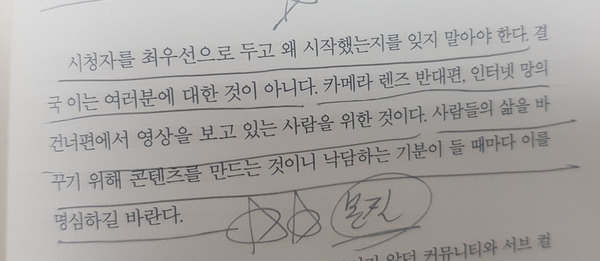 시청자를 최우선으로 두고 왜 시작했는지를 잊지 말아야 한다. 결
국 이는 여러분에 대한 것이 아니다. 카메라 렌즈 반대편, 인터넷 망의
건너편에서 영상을 보고 있는 사람을 위한 것이다. 사람들의 삶을 바
꾸기 위해 콘텐츠를 만드는 것이니 낙담하는 기분이 들 때마다 이를
명심하길 바란다.
본질
알던 커뮤니티와 서브 컬